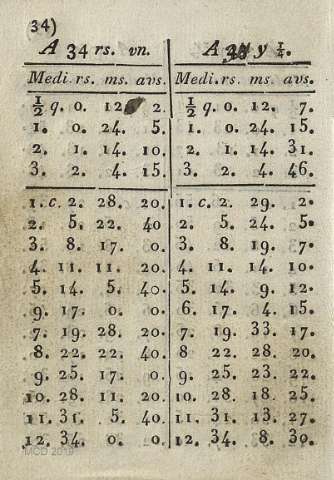 34)
A 34 rs. vn.
Medi. rs. ms. avs.
½ q. 0. 12. 2.
1. 0. 24. 5.
2. 1. 14. 10.
3. 2. 4. 15.
1. c. 2. 28. 20.
2. 5. 22. 40
3. 8. 17. 0.
4. 11. 11. 20.
5. 14. 5. 40.
9. 17. 0. 0.
7. 19. 28. 20.
8. 22. 22. 40.
9. 25. 17. 0.
10. 28. 11. 20.
11. 31. 5. 40.
12. 34. 0. 0.
A y ¼.
Medi. rs. ms. avs.
½ q. 0. 12. 7.
1. 0. 24. 15.
2. 1. 14. 31.
3. 2. 4. 46.
1. c. 2. 29. 2.
2. 5. 24. 5.
3. 8. 19. 7.
4. 11. 14. 10.
5. 14. 9. 12.
6. 17. 4. 15.
7. 19. 33. 17.
8. 22. 28. 20.
9. 25. 23. 22.
10. 28. 18. 25.
11. 31. 13. 27.
12. 34. 8. 30.
MCD 2019